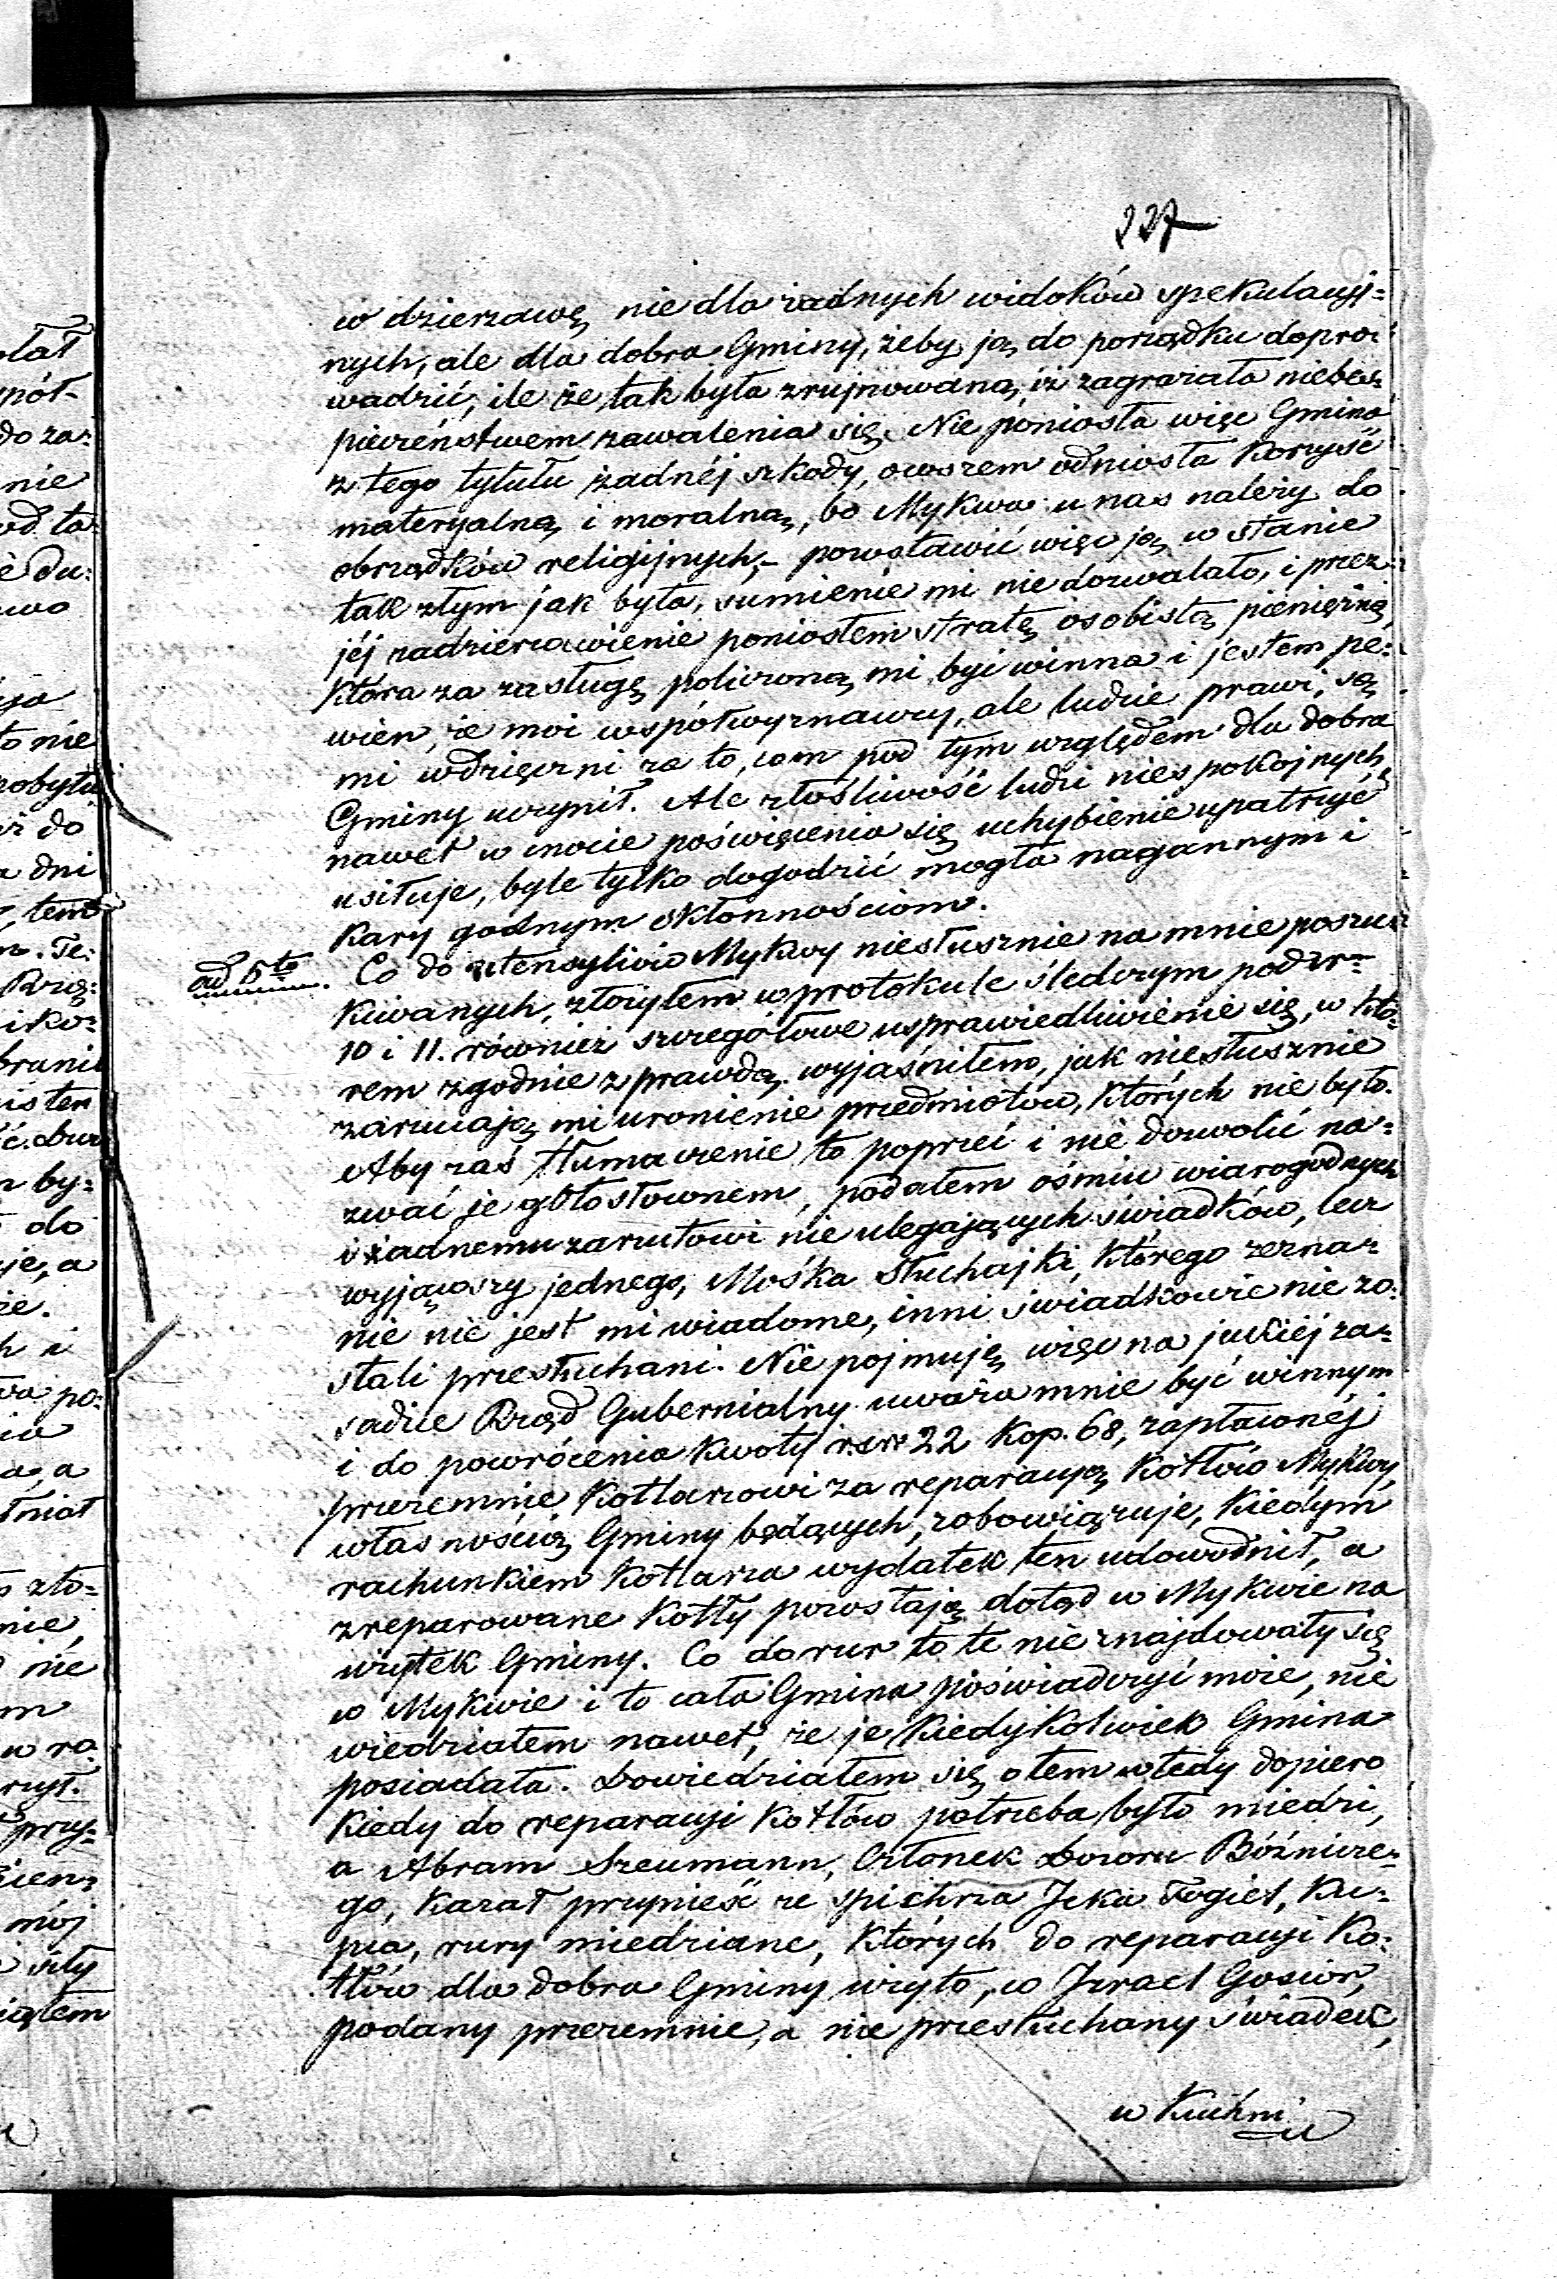 227
w dzierzawę nie dla żadnych widoków spekulacyj=
nych, ale dla dobra Gminy, żeby ją do porządku dopro=
wadzić, ile że tak była zrujnowaną, iż zagrażała niebez=
pieczeństwem zawalenia się. Nie poniosła więc Gmina
z tego tytułu żadnéj szkody, owszem odniosła Korzyść
materyalną i moralną, bo Mykwa u nas należy do
obrządków religijnych,- powstawić więc ją w stanie
tak złym jak była, sumienie mi nie dozwalało, i przez
jéj zadzierżawienie poniosłem stratę osobistą pieniężną,
Która za zasługę policzoną mi być winna i jestem pe=
wien, że moi współwyznawcy, ale ludzie prawi, są
mi wdzięczni za to, com pod tym względem dla dobra
Gminy uczynił. Ale złośliwość ludzi niespokojnych,
nawet w cnocie poświęcenia się uchybienie upatrzyć
usiłuje, byle tylko dogodzić mogła nagannym i
Kary godnym skłonnościom.
ad 5to. Co do utensyliów Mykwy niesłusznie na mnie poszu=
kiwanych, złożyłem w protokule śledczym pod Nr
10 i 11. również szczegółowe usprawiedliwienie się, w któ=
rem zgodnie z prawdą wyjaśniłem, jak niesłusznie
zarzucają mi uronienie przedmiotów, Których nie było.
Aby zaś tłumaczenie to poprzeć i nie dozwolić na=
zwać je gołosłownem, podałem ośmiu wiarogodnych
i żadnemu zarzutowi nie ulegających świadków, lecz
wyjąwszy jednego, Mośka Słuchajki, Którego zezna=
nie nie jest mi wiadome, inni świadkowie nie zo=
stali przesłuchani. Nie pojmuję więc na jakiéj za=
sadzie Rząd Gubernialny uważa mnie być winnym
i do powrócenia Kwoty rsr 22 Kop. 68, zapłaconéj
przezemnie Kotlarzowi za reparacyą Kotłów Mykwy,
własnością Gminy będących, zobowiązuje, Kiedym
rachunkiem Kotlarza wydatek ten udowodnił, a
zreparowane Kotły pozostają dotąd w Mykwie na
użytek Gminy. Co do rur to te nie znajdowały się
w Mykwie i to cała Gmina poświadczyć może, nie
wiedziałem nawet, że je Kiedykolwiek Gmina
posiadała. Dowiedziałem się o tem wtedy dopiero
Kiedy do reparacyi Kotłów potrzeba było miedzi,
a Abram Szeumann, Członek Dozoru Bóźnicze=
go, Kazał przynieść ze spichrza Icka Fogiel, Ku=
pca, rury miedziane, Których do reparacyi Ko=
tłów dla dobra Gminy użyto, co Izrael Gosior,
podany przezemnie, a nie przesłuchany świadek,
w Kuchni